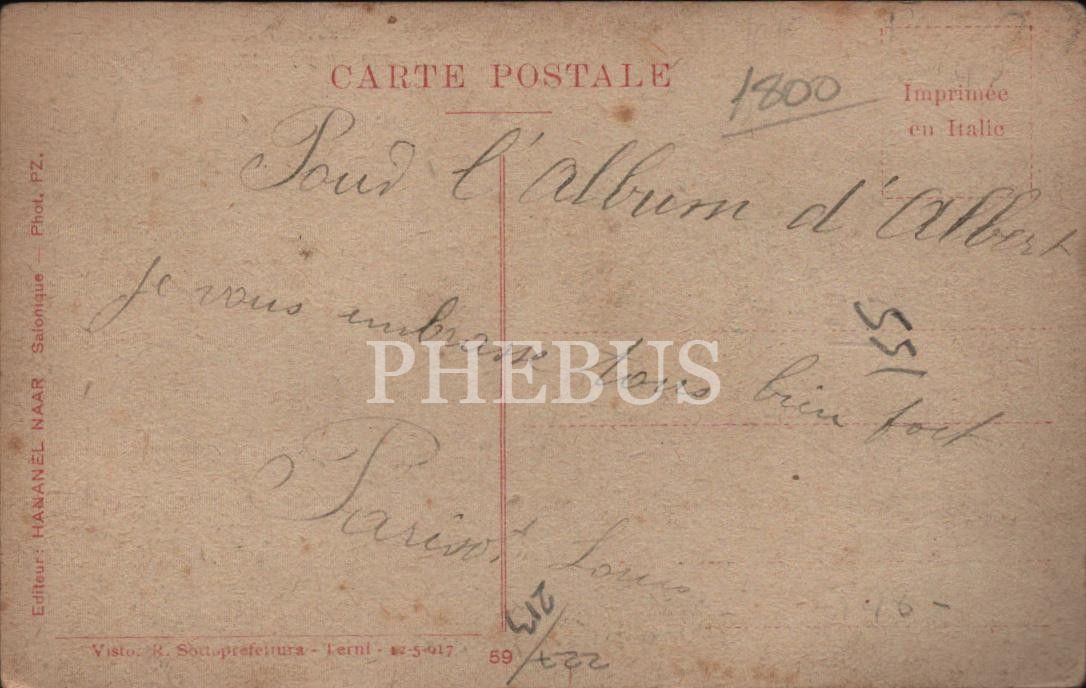 CARTE POSTALE
1800
Imprimée
en Italie
Pour l'Album d'Albert
Je vous embrasse tous bien fort
551
PHEBUS
Louis
Editeur: HANANEL NAAR Salonique — Phot. PZ.
Visto. R. Sottoprefettura - Terni - 12-5-917
59
213/
227